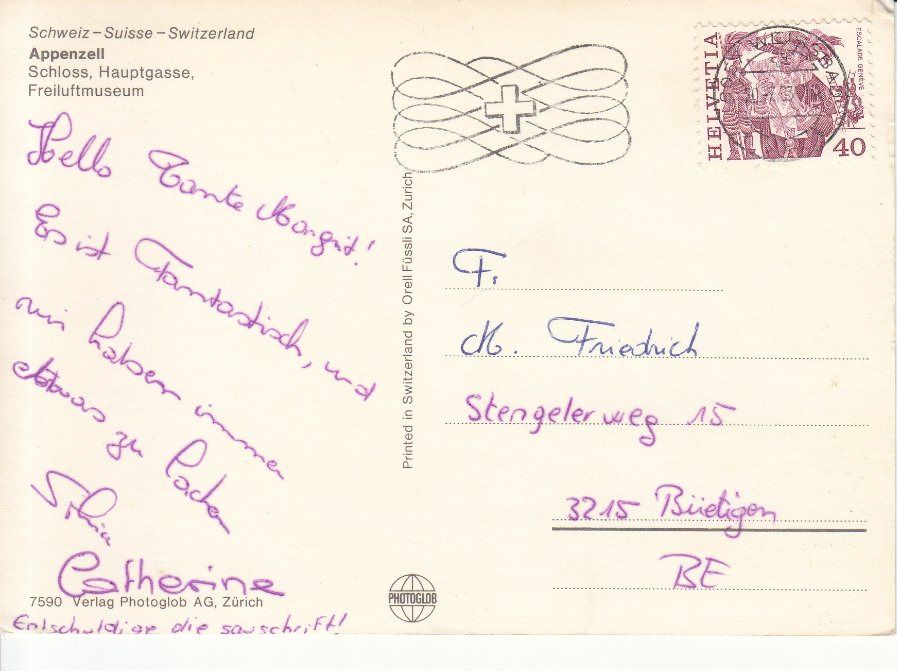 Schweiz – Suisse – Switzerland
Appenzell
Schloss, Hauptgasse,
Freiluftmuseum
Hello Tante Margrit!
Es ist Fantastisch, und
wir haben immer
etwas zu lachen
Silvia
Catherine
7590 Verlag Photoglob AG, Zürich
Entschuldige die sauschrift!
Printed in Switzerland by Orell Füssli SA, Zurich
PHOTOGLOB
HELVETIA
ESCALADE GENÈVE
40
F.
M. Friedrich
Stengelerweg 15
3215 Büetigen
BE